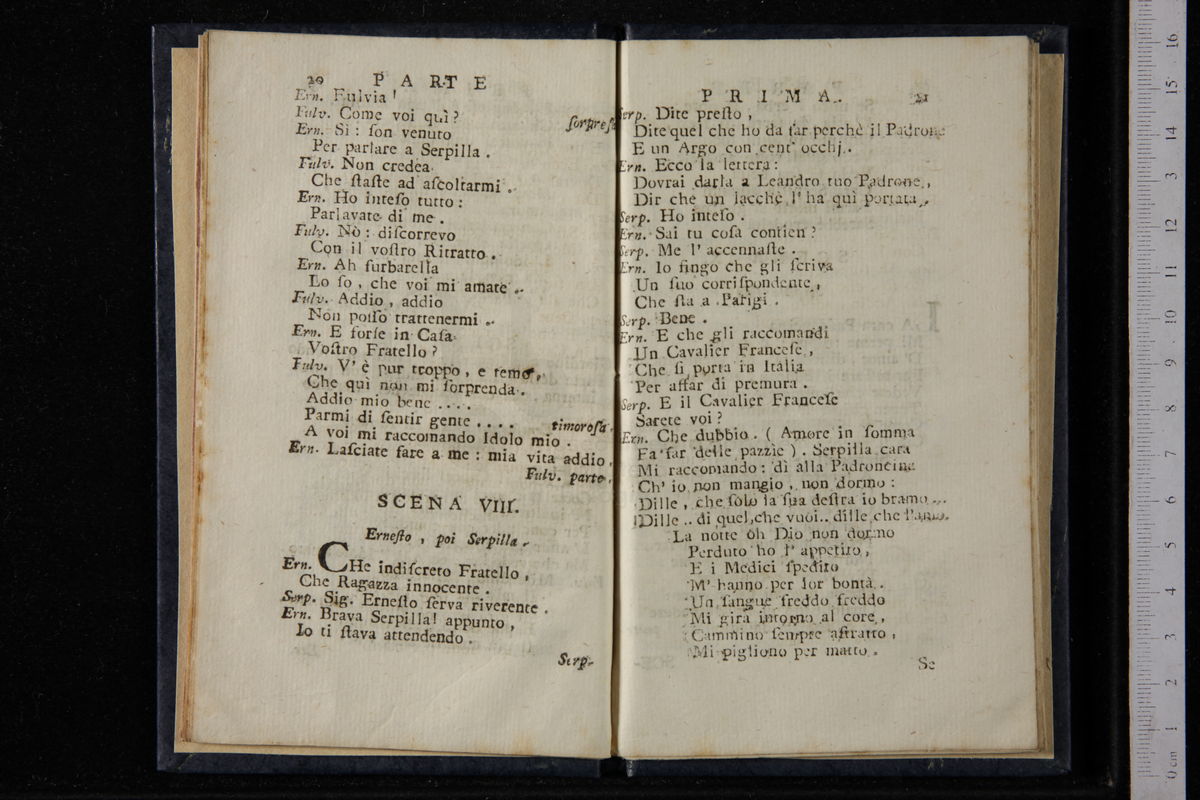 20 PARTE
Ern. Fulvia!
Fulv. Come voi quì? sorpresa
Ern. Sì: ſon venuto
Per parlare a Serpilla.
Fulv. Non credea
Che ſtaſte ad aſcoltarmi.
Ern. Ho inteſo tutto:
Parlavate di me.
Fulv. Nò: diſcorrevo
Con il voſtro Ritratto.
Ern. Ah furbarella
Lo ſo, che voi mi amate.
Fulv. Addio, addio
Non poſſo trattenermi.
Ern. E forſe in Caſa
Voſtro Fratello?
Fulv. V' è pur troppo, e temo,
Che quì non mi ſorprenda.
Addio mio bene ....
Parmi di ſentir gente .... timoroſa.
A voi mi raccomando Idolo mio.
Ern. Laſciate fare a me: mia vita addio.
Fulv. parte.
SCENA VIII.
Erneſto, poi Serpilla.
Ern. CHe indiſcreto Fratello,
Che Ragazza innocente.
Serp. Sig. Erneſto ſerva riverente.
Ern. Brava Serpilla! appunto,
Io ti ſtava attendendo.
Serp.
PRIMA. 21
Serp. Dite preſto,
Dite quel che ho da far perchè il Padrone
E un Argo con cent' occhj.
Ern. Ecco la lettera:
Dovrai darla a Leandro tuo Padrone,
Dir che un lacchè l' ha quì portata.
Serp. Ho inteſo.
Ern. Sai tu coſa contien?
Serp. Me l' accennaſte.
Ern. Io fingo che gli ſcriva
Un ſuo corriſpondente,
Che ſta a Parigi.
Serp. Bene.
Ern. E che gli raccomandi
Un Cavalier Franceſe,
Che ſi porta in Italia
Per affar di premura.
Serp. E il Cavalier Franceſe
Sarete voi?
Ern. Che dubbio. (Amore in ſomma
Fa far delle pazzìe). Serpilla cara
Mi raccomando: dì alla Padroncina
Ch' io non mangio, non dormo:
Dille, che ſolo la ſua deſtra io bramo...
Dille .. di quel che vuoi.. dille che l'amo.
La notte oh Dio non dormo
Perduto ho l' appetito,
E i Medici ſpedito
M' hanno per lor bontà.
Un ſangue freddo freddo
Mi gira intorno al core,
Cammino ſempre aſtratto,
Mi pigliono per matto.
Se